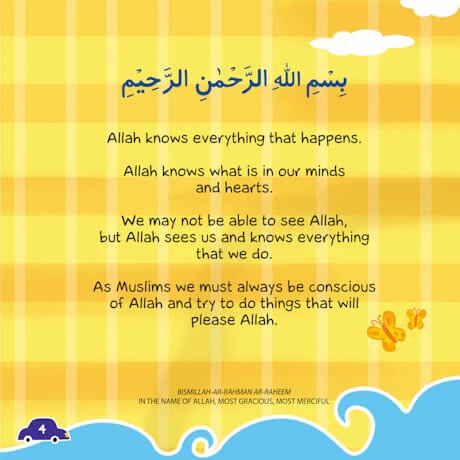 بِسْمِ اللهِ الرَّحْمٰنِ الرَّحِيْمِ
Allah knows everything that happens.
Allah knows what is in our minds
and hearts.
We may not be able to see Allah,
but Allah sees us and knows everything
that we do.
As Muslims we must always be conscious
of Allah and try to do things that will
please Allah.
BISMILLAH-AR-RAHMAN AR-RAHEEM
IN THE NAME OF ALLAH, MOST GRACIOUS, MOST MERCIFUL
4